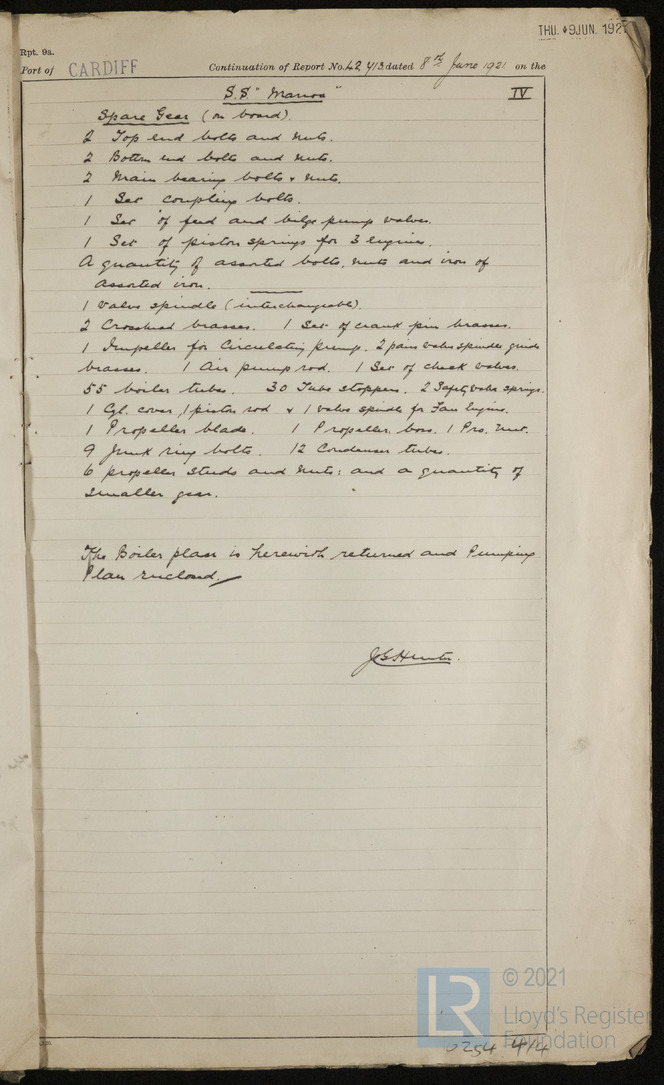 THU. 9 JUN. 192
Rpt. 9a.
Port of CARDIFF Continuation of Report No. 42413 dated 8th June 1921 on the
S.S. "Manoa" IV
Spare Gear (on board).
2 Top end bolts and nuts.
2 Bottom end bolts and nuts.
2 Main bearing bolts & nuts.
1 Set coupling bolts.
1 Set of feed and bilge pump valves.
1 Set of piston springs for 3 engines.
A quantity of assorted bolts, nuts and iron of
assorted iron.
1 Valve spindle (interchangeable).
2 Crosshead brasses. 1 Set of crank pin brasses.
1 Impeller for Circulating pump. 2 pairs valve spindle guide
brasses. 1 Air pump rod. 1 Set of check valves.
55 boiler tubes. 30 Tube stoppers. 2 Safety valve springs.
1 Cyl. cover, 1 piston rod & 1 valve spindle for Fan Engine.
1 Propeller blade. 1 Propeller boss. 1 Pro. Nut.
9 Junk ring bolts. 12 Condenser tubes.
6 propeller studs and nuts; and a quantity of
smaller gear.
The Boiler plan is herewith returned and Pumping
Plan enclosed.
J.G. Hunter.
© 2021
LR
Lloyd's Register
Foundation
0254 414